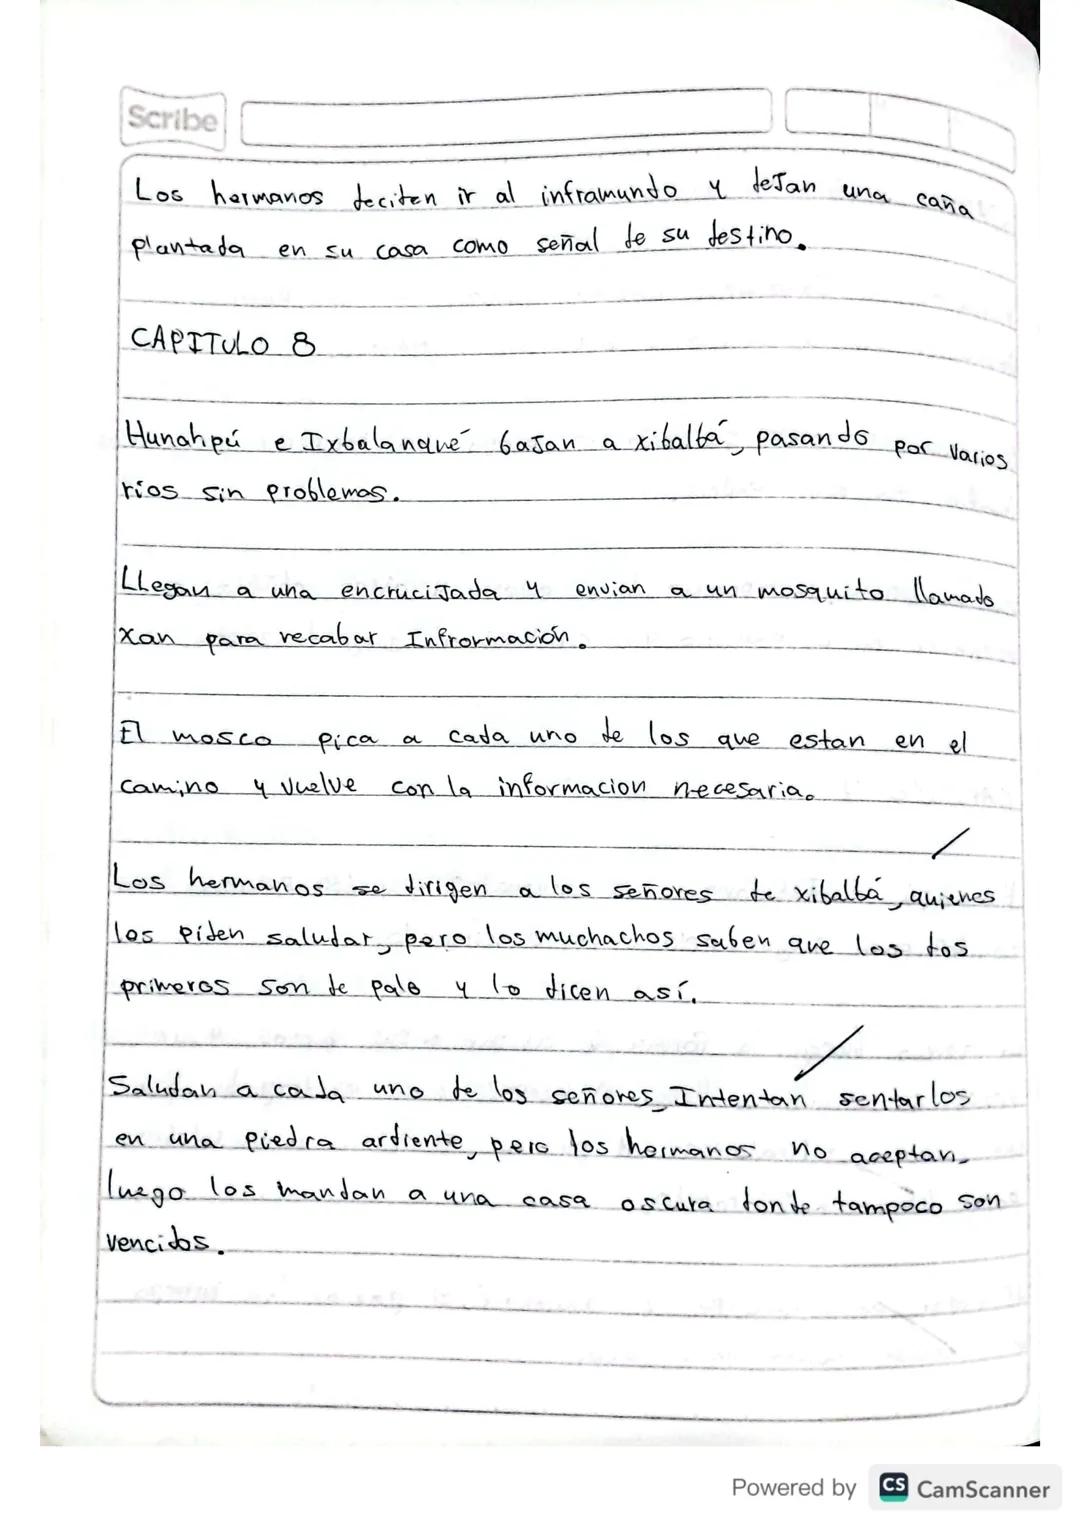 Scribe
Los hermanos deciden ir al inframundo y dejan una caña
plantada en su casa como señal de su destino.
CAPITULO 8
Hunahpú e Ixbalanqué bajan a xibalbá, pasando por varios
rios sin problemas.
Llegan a una encrucijada y envian a un mosquito llamado
xan para recabar Infrormación.
El mosco pica a cada uno de los que estan en el
camino y vuelve con la informacion necesaria.
Los hermanos se dirigen a los señores de xibalbá, quienes
los piden saludar, pero los muchachos saben que los dos
primeros son de palo y lo dicen así.
Saludan a cada uno de los señores, Intentan sentarlos
en una piedra ardiente, pero los hermanos no aceptan,
luego los mandan a una casa oscura donde tampoco son
vencidos.
Powered by CS CamScanner